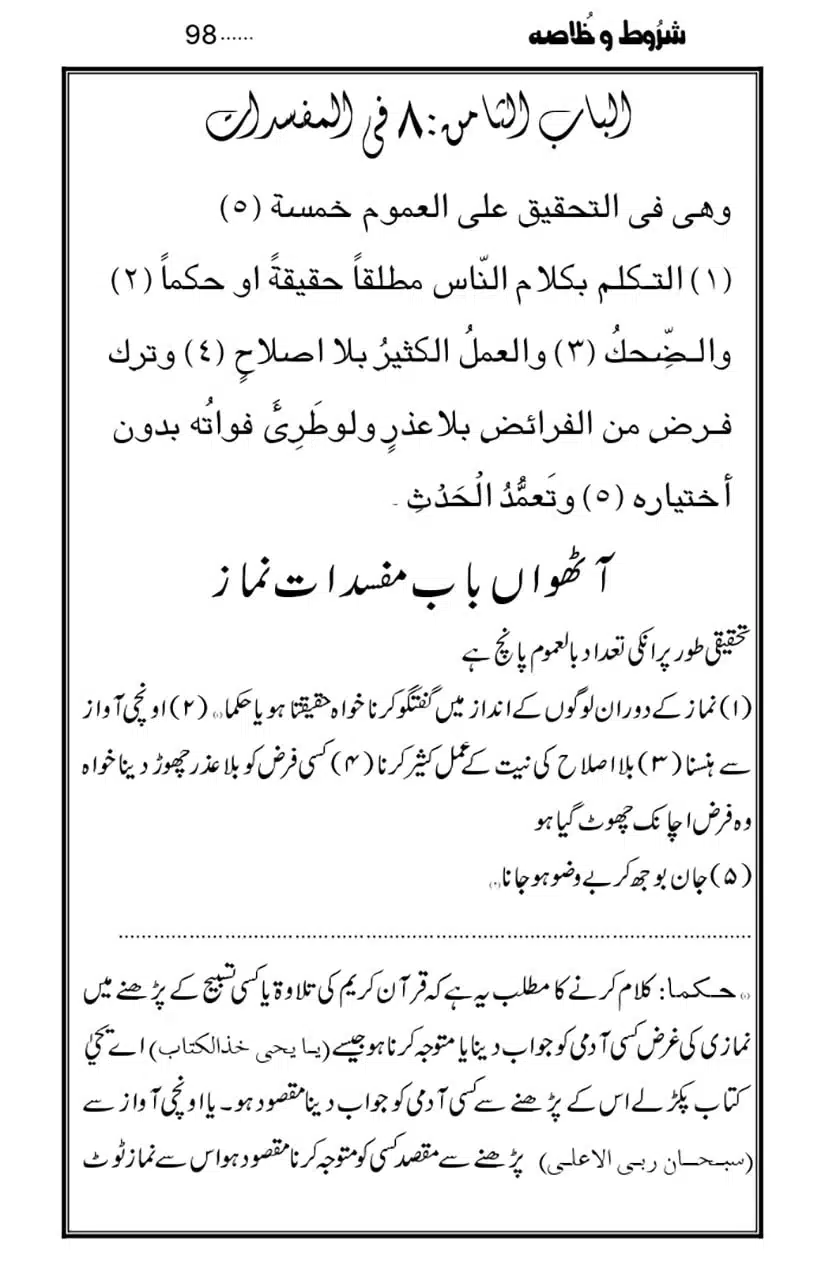 شرُوط و خُلاصه ......98
الباب الثامن:۸ فی المفسدات
وهی فی التحقیق علی العموم خمسة (٥)
(١) التکلم بکلام النّاس مطلقاً حقیقةً او حکماً (٢)
والضِّحكُ (٣) والعملُ الکثیرُ بلا اصلاحٍ (٤) وترك
فرض من الفرائض بلاعذرٍ ولوطَرِیأَ فواتُه بدون
أختیاره (٥) وتَعمُّدُ الْحَدْثِ ۔
آٹھواں باب مفسدات نماز
تحقیقی طور پر انکی تعداد بالعموم پانچ ہے
(۱) نماز کے دوران لوگوں کے انداز میں گفتگو کرنا خواہ حقیقتا ہو یا حکما (۱) (۲) اونچی آواز
سے ہنسنا (۳) بلا اصلاح کی نیت کے عمل کثیر کرنا (۴) کسی فرض کو بلا عذر چھوڑ دینا خواہ
وہ فرض اچانک چھوٹ گیا ہو
(۵) جان بوجھ کر بے وضو ہو جانا (۲)
(۱) حکما: کلام کرنے کا مطلب یہ ہے کہ قرآن کریم کی تلاوۃ یا کسی تسبیح کے پڑھنے میں
نمازی کی غرض کسی آدمی کو جواب دینا یا متوجہ کرنا ہو جیسے (یا یحیی خذالکتاب) اے یحیٰ
کتاب پکڑ لے اس کے پڑھنے سے کسی آدمی کو جواب دینا مقصود ہو۔ یا اونچی آواز سے
(سبحان ربی الاعلی) پڑھنے سے مقصد کسی کو متوجہ کرنا مقصود ہو اس سے نماز ٹوٹ